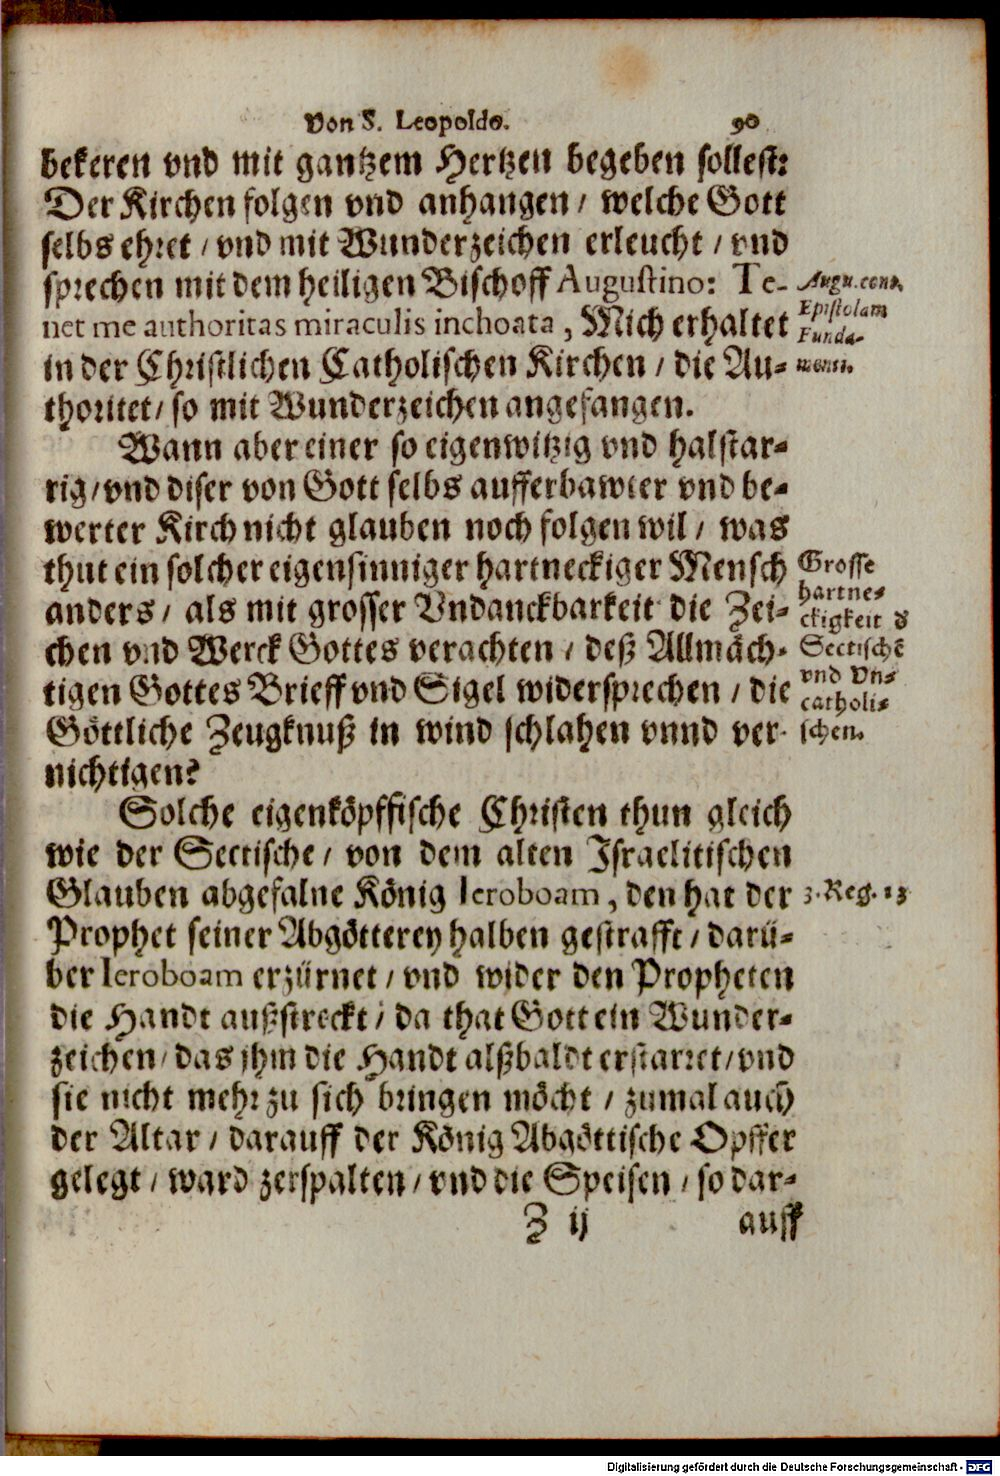 Von S. Leopoldo. 90
bekeren vnd mit gantzem Hertzen begeben sollest:
Der Kirchen folgen vnd anhangen / welche Gott
selbs ehret / vnd mit Wunderzeichen erleucht / vnd
sprechen mit dem heiligen Bischoff Augustino: Te-
net me authoritas miraculis inchoata, Mich erhaltet
in der Christlichen Catholischen Kirchen / die Au-
thoritet / so mit Wunderzeichen angefangen.
Augu. cont.
Epistolam
Funda-
menti.
Wann aber einer so eigenwitzig vnd halstar-
rig / vnd diser von Gott selbs aufferbawter vnd be-
werter Kirch nicht glauben noch folgen wil / was
thut ein solcher eigensinniger hartneckiger Mensch
anders / als mit grosser Vndanckbarkeit die Zei-
chen vnd Werck Gottes verachten / deß Allmäch-
tigen Gottes Brieff vnd Sigel widersprechen / die
Göttliche Zeugknuß in wind schlahen vnnd ver-
nichtigen?
Grosse
hartne-
ckigkeit d
Sectischē
vnd Vn-
catholi-
schen.
Solche eigenköpffische Christen thun gleich
wie der Sectische / von dem alten Israelitischen
Glauben abgefalne König Ieroboam, den hat der
Prophet seiner Abgötterey halben gestrafft / darü-
ber Ieroboam erzürnet / vnd wider den Propheten
die Handt außstreckt / da that Gott ein Wunder-
zeichen / das jhm die Handt alßbaldt erstarret / vnd
sie nicht mehr zu sich bringen möcht / zumal auch
der Altar / darauff der König Abgöttische Opffer
gelegt / ward zerspalten / vnd die Speisen / so dar-
3. Reg. 13
Z ij auff
Digitalisierung gefördert durch die Deutsche Forschungsgemeinschaft - DFG